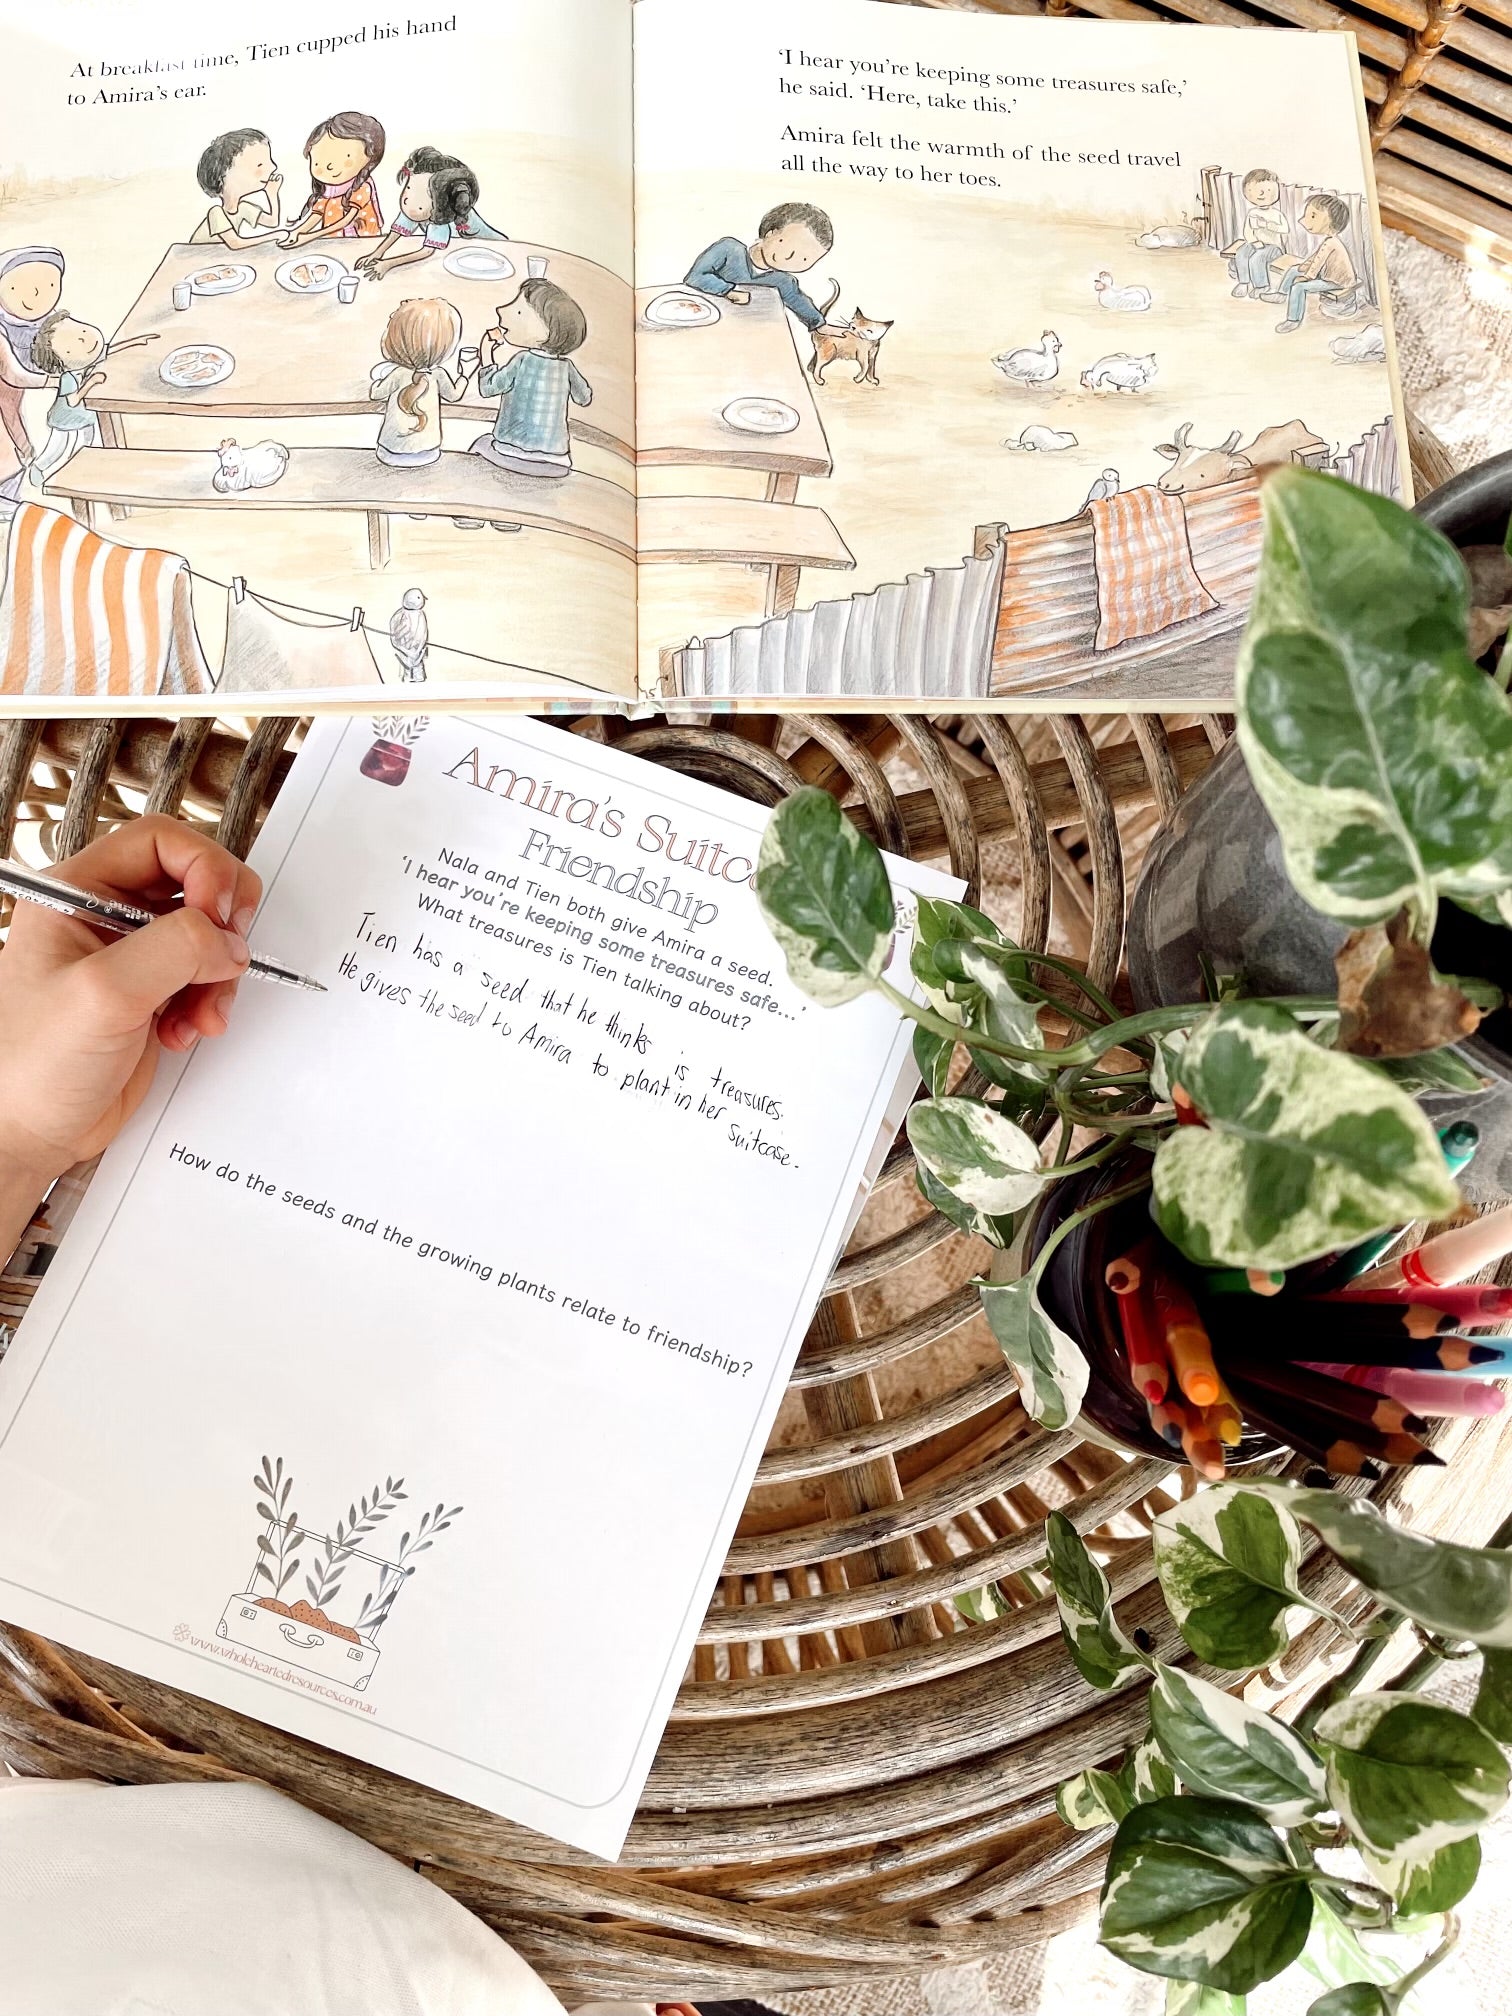 At breakfast time, Tien cupped his hand
to Amira's ear.
'I hear you're keeping some treasures safe,'
he said. 'Here, take this.'
Amira felt the warmth of the seed travel
all the way to her toes.
Amira's Suitc
Friendship
Nala and Tien both give Amira a seed.
'I hear you're keeping some treasures safe...'
What treasures is Tien talking about?
Tien has a seed that he thinks is treasures.
He gives the seed to Amira to plant in her suitcase.
How do the seeds and the growing plants relate to friendship?
www.wholeheartedresources.com.au